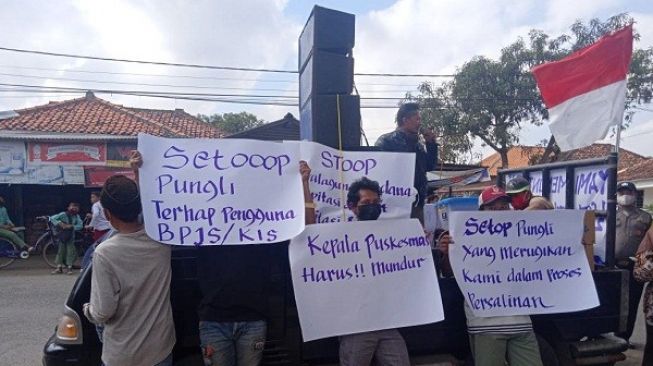 Setooop
Pungli
Terhap pengguna
BPJS/KIS
STOOP
Kepala Puskesmas
Harus!! Mundur
Setop Pungli
Yang merugikan
Kami dalam Proses
Persalinan